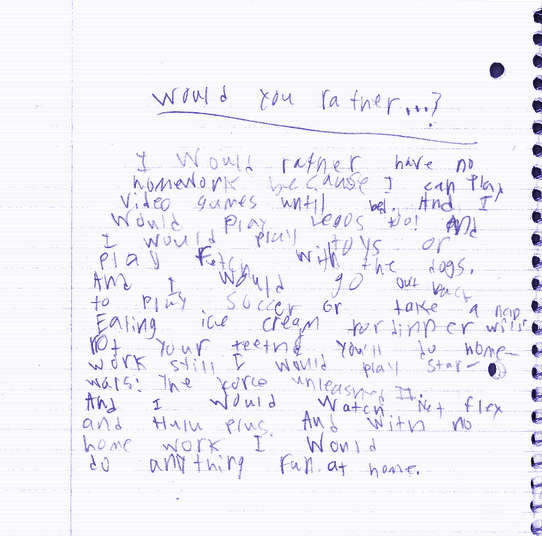 Would you rather...?
I would rather have no
homework because I can Play
video games until bed. And I
would play Legos to! And
I would play toys or
play Fetch with the dogs.
And I would go out back
to play soccer or take a nap
Eating ice cream for dinner will
rot your teeth you'll do home-
work still I would play star-
wars: The Force unleashed II.
And I would watch Netflex
and Hulu plus. And with no
home work I would
do anything Fun at home.